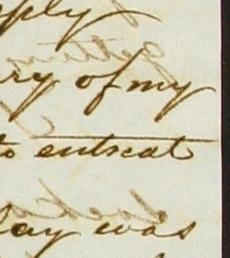 pply
ry of my
to entreat
lay was